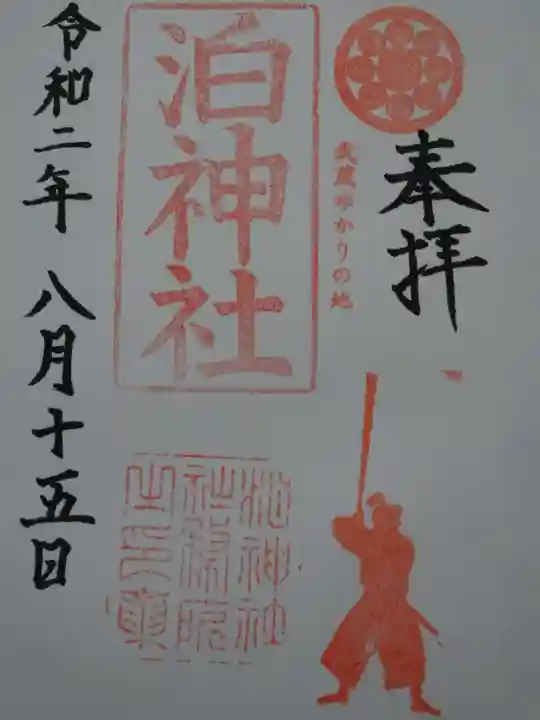 奉拝
武蔵ゆかりの地
泊神社
泊神社
令和二年 八月十五日